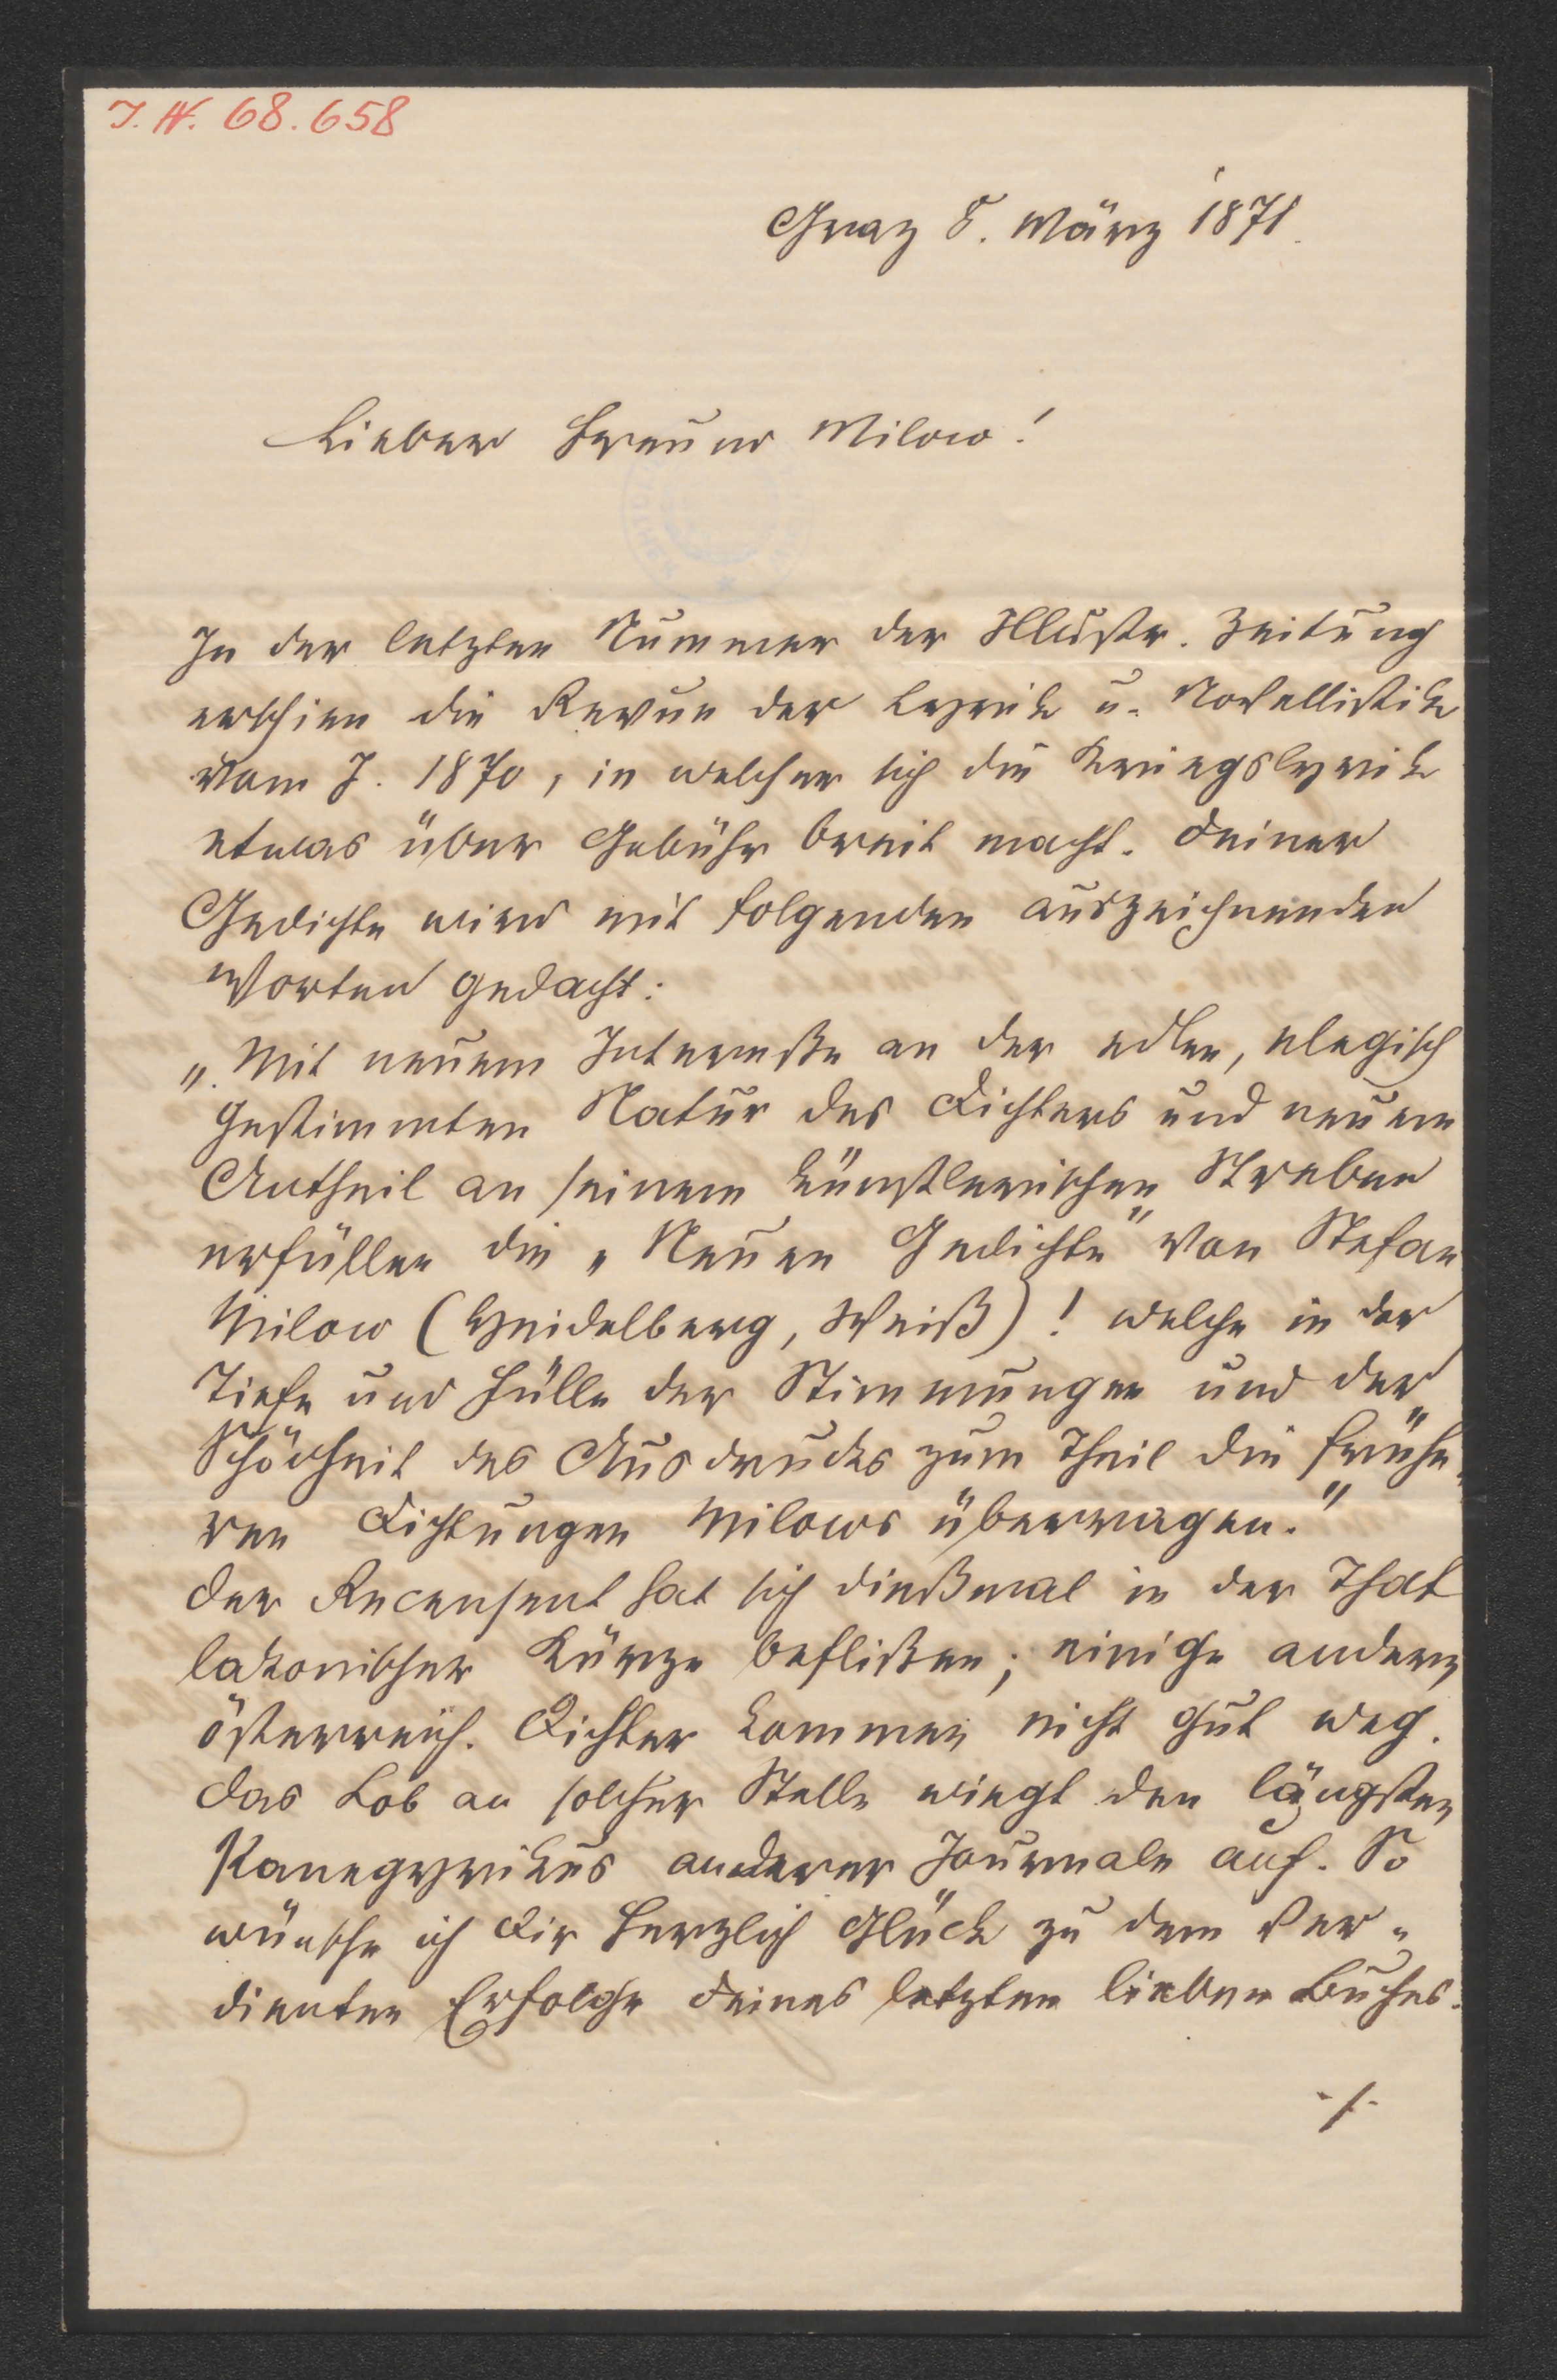 I. N. 68.658
Graz 8. März 1871.
Lieber Freund Milow!
In der letzten Nummer der Illustr. Zeitung
erschien die Revue der Lyrik u. Novellistik
vom J. 1870, in welcher sich die Kriegslyrik
etwas über Gebühr breit macht. Deiner
Gedichte wird mit folgenden auszeichnenden
Worten gedacht:
„Mit neuem Intereße an der edlen, elegisch
gestimmten Natur des Dichters und neuem
Antheil an seinem künstlerischen Streben
erfüllen die „Neuen Gedichte" von Stefan
Milow (Heidelberg, Weiß)! welche in der
Tiefe und Fülle der Stimmungen und der
Schönheit des Ausdrucks zum Theil die frühe-
ren Dichtungen Milows überragen."
Der Recensent hat sich dießmal in der That
lakonischer Kürze beflißen; einige andere
österreich. Dichter kommen nicht gut weg.
Das Lob an solcher Stelle wiegt den längsten
Panegyrikus anderer Journale auf. So
wünsche ich Dir herzlich Glück zu dem ver-
dienten Erfolge Deines letzten lieben Buches.
./.